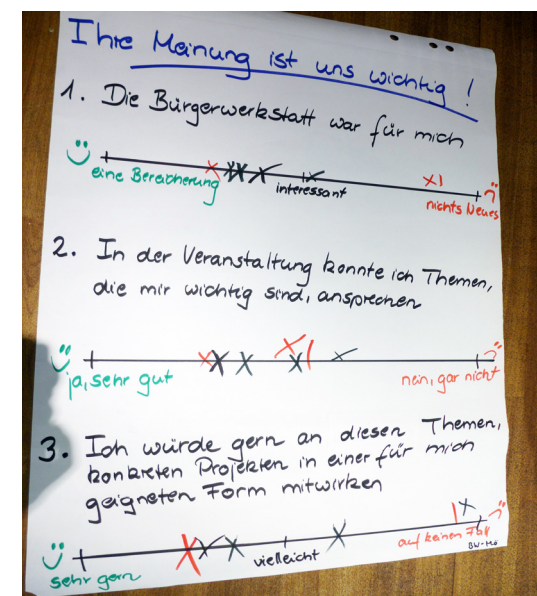 Ihre Meinung ist uns wichtig!
1. Die Bürgerwerkstatt war für mich
eine Bereicherung interessant nichts Neues
2. In der Veranstaltung konnte ich Themen,
die mir wichtig sind, ansprechen
ja, sehr gut nein, gar nicht
3. Ich würde gern an diesen Themen,
konkreten Projekten in einer für mich
geeigneten Form mitwirken
sehr gern vielleicht auf keinen Fall